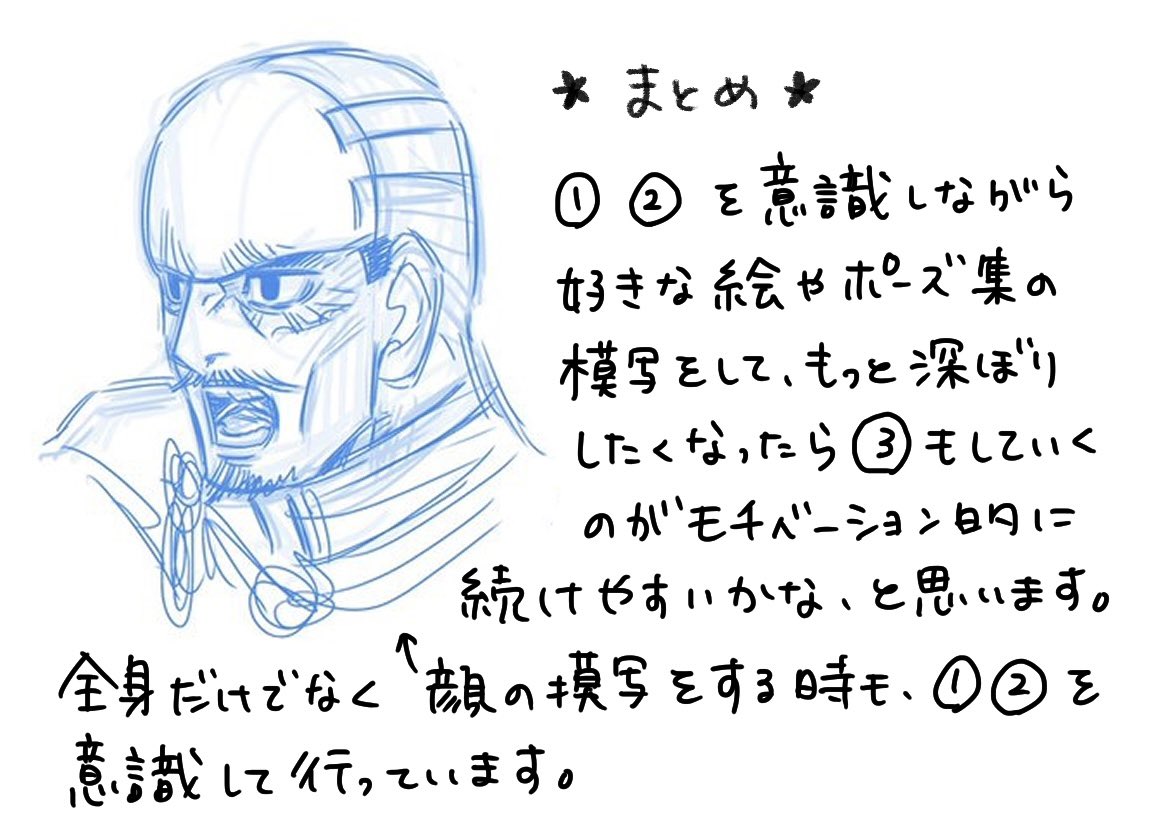 * まとめ *
① ② を意識しながら
好きな絵やポーズ集の
模写をして、もっと深ぼり
したくなったら③もしていく
のがモチベーション的に
続けやすいかな、と思います。
全身だけでなく ↑顔の模写をする時も、①②を
意識して行っています。